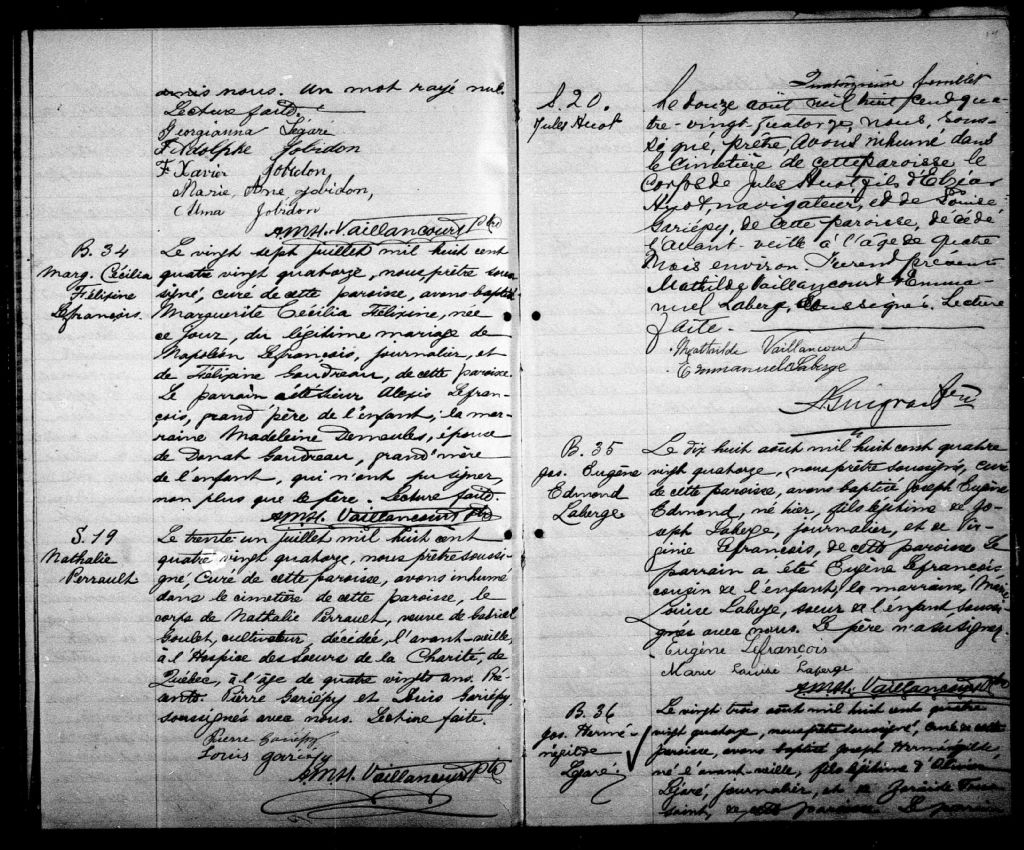 amis nous. Un mot rayé nul.
Lecture faite.
Georgianna Légaré
F Adolphe Jobidon
F Xavier Jobidon
Marie Ane Jobidon,
Alma Jobidon
A.M.H. Vaillancourt Ptre
B. 34
Marg. Cécilia
Félixine
Lefrançois.
Le vingt sept juillet mil huit cent
quatre vingt quatorze, nous prêtre sous
signé, curé de cette paroisse, avons baptisé
Marguerite Cécilia Félixine, née
ce jour, du légitime mariage de
Napoléon Lefrançois, journalier, et
de Félixine Gaudreau, de cette paroisse.
Le parrain a été sieur Alexis Lefran-
çois, grand père de l'enfant; la mar-
raine Madeleine Demeules, épouse
de Donat Gaudreau, grand'mère
de l'enfant, qui n'ont pu signer,
non plus que le père. Lecture faite.
A.M.H. Vaillancourt Ptre
S. 19
Nathalie
Perrault
Le trente un juillet mil huit cent
quatre vingt quatorze, nous prêtre soussi-
gné, Curé de cette paroisse, avons inhumé
dans le cimetière de cette paroisse, le
corps de Nathalie Perrault, veuve de Gabriel
Goulet, cultivateur, décédée, l'avant-veille
à l'Hospice des Soeurs de la Charité, de
Québec, à l'âge de quatre vingts ans. Pré-
sents. Pierre Gariépy et Louis Gariépy
soussignés avec nous. Lecture faite.
Pierre Gariépy
Louis gariépy
A.M.H. Vaillancourt Ptre
Quatorzième feuillet
S. 20.
Jules Huot
Le douze août mil huit cent qua-
tre-vingt quatorze, nous, sous-
signé, prêtre, avons inhumé dans
le Cimetière de cette paroisse le
Corps de Jules Huot, fils d'Elzéar
Huot, navigateur, et de Louise
Gariépy, de cette paroisse, décédé
l'avant-veille à l'âge de quatre
mois environ. Furent présents
Mathilde Vaillancourt & Emma-
nuel Laberge, soussignés. Lecture
faite.
Mathilde Vaillancourt
Emmanuel Laberge
B. 35
Jos. Eugène
Edmond
Laberge
Le dix huit août mil huit cent quatre
vingt quatorze, nous prêtre soussigné, curé
de cette paroisse, avons baptisé Joseph Eugène
Edmond, né hier, fils légitime de Jo-
seph Laberge, journalier, et de Vir-
ginie Lefrançois, de cette paroisse. Le
parrain a été Eugène Lefrançois
cousin de l'enfant, la marraine, Marie
Louise Laberge, soeur de l'enfant soussi-
gnés avec nous. Le père n'a su signer.
Eugène Lefrançois
Marie Louise Laberge
A.M.H. Vaillancourt Ptre
B. 36
Jos. Hermé-
négilde
Légaré.
Le vingt trois août mil huit cent quatre
vingt quatorze, nous prêtre soussigné, curé de cette
paroisse, avons baptisé Joseph Herménégilde
né l'avant-veille, fils légitime d'Olivier
Légaré, journalier, et de
de cette paroisse. Le parrain